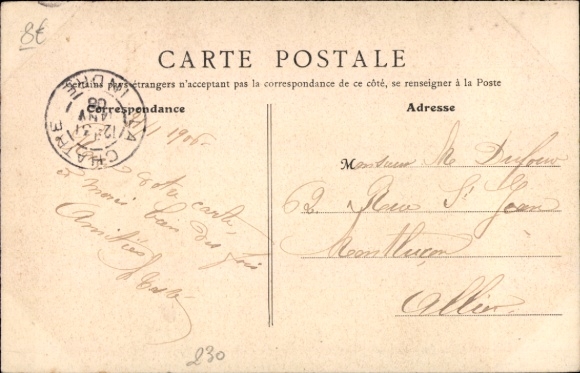 8€
CARTE POSTALE
Certains pays étrangers n'acceptent pas la correspondance de ce côté, se renseigner à la Poste
Correspondance
Adresse
LA CHATRE
INDRE
12
31
JANV
06
1906
Monsieur M. Dufour
62 Rue St Jean
Montluçon
Allier
votre carte,
et merci bien des fois
Amitiés
230